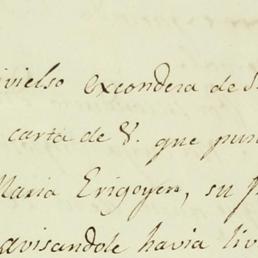 ivielso excondera de S.
carta de V. que pun
Maria Erigoyen, su p
avisandole havia liv